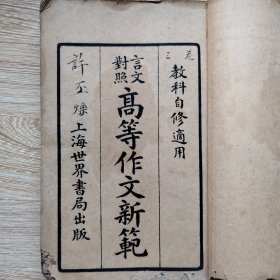 卷三
教科自修適用
言文對照
高等作文新範
上海世界書局出版